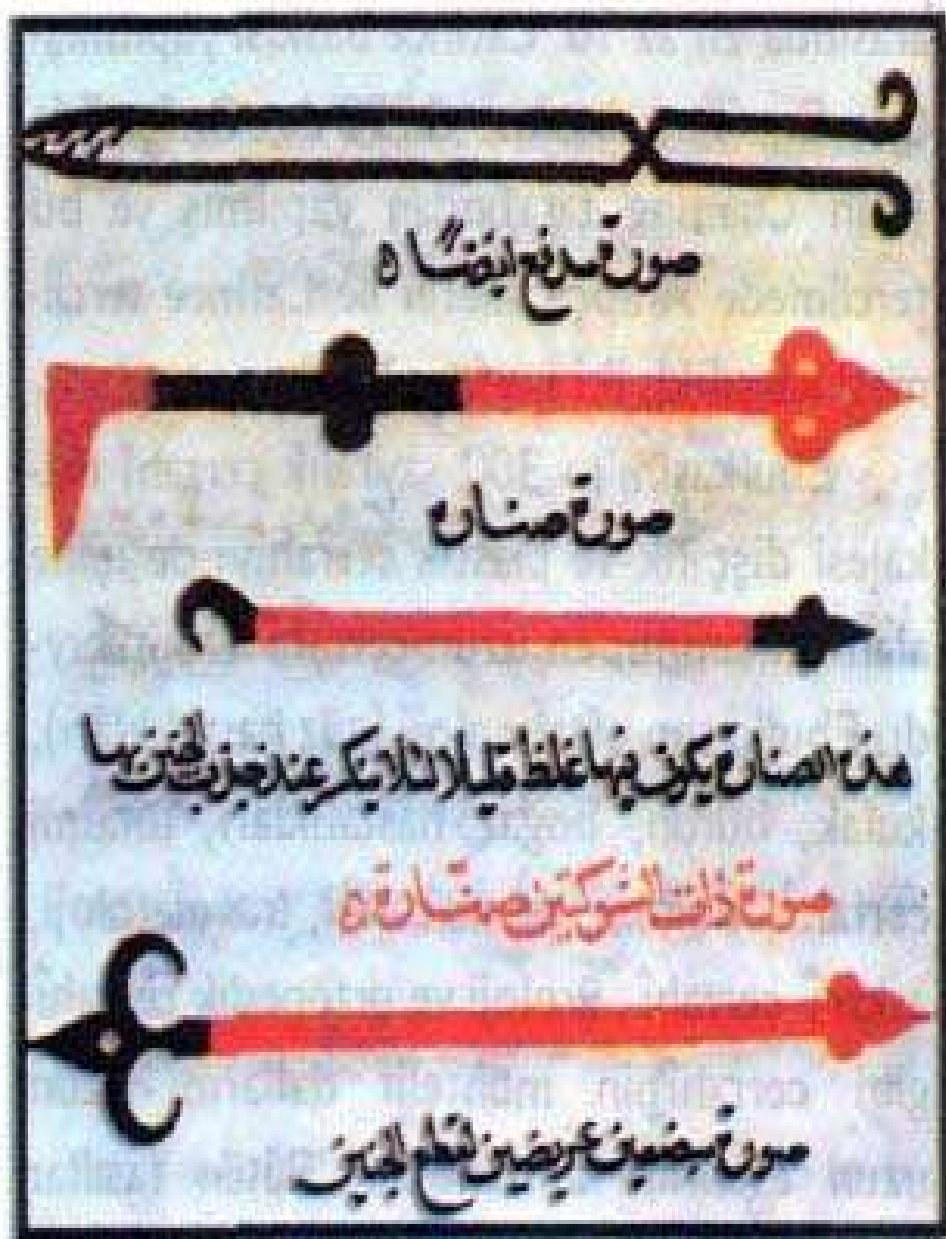 صورة مدفع ايضًا ه
صورة صناره
هذه الصنارة يكون فيها غلظ قليلا لئلا ينكسر عند جذب الجنين بها
صورة ذات الشوكتين صنّارة ه
صورة مبضعين عريضين لقطع الجنين